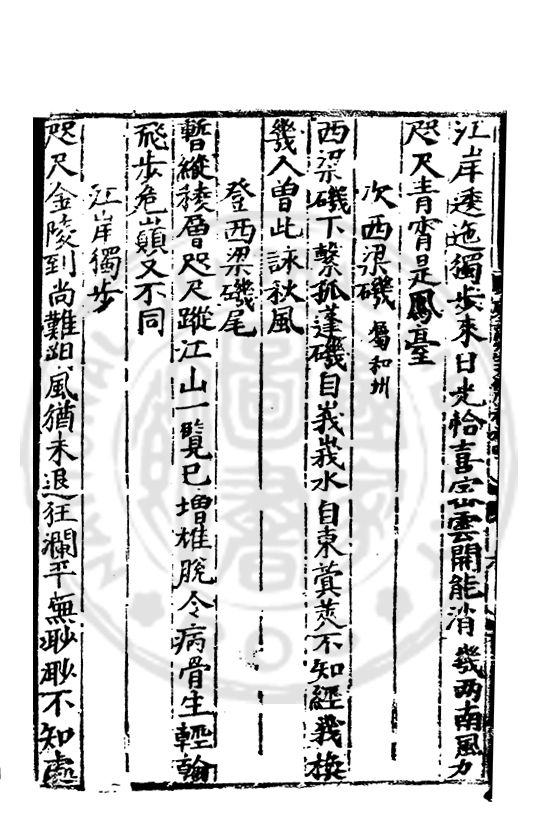 江岸逶迤獨步來日光恰喜密雲開能消幾兩南風力
咫尺青霄是鳳臺
次西梁磯 屬和州
西梁磯下繫孤蓬磯自峩峩水自東蓂莢不知經幾換
幾人曽此詠秋風
登西梁磯尾
暫縱稜層咫尺蹤江山一覽已增雄脫令病骨生輕翰
飛步危巔又不同
江岸獨步
咫尺金陵到尚難泊風猶未退狂瀾平蕪眇眇不知處